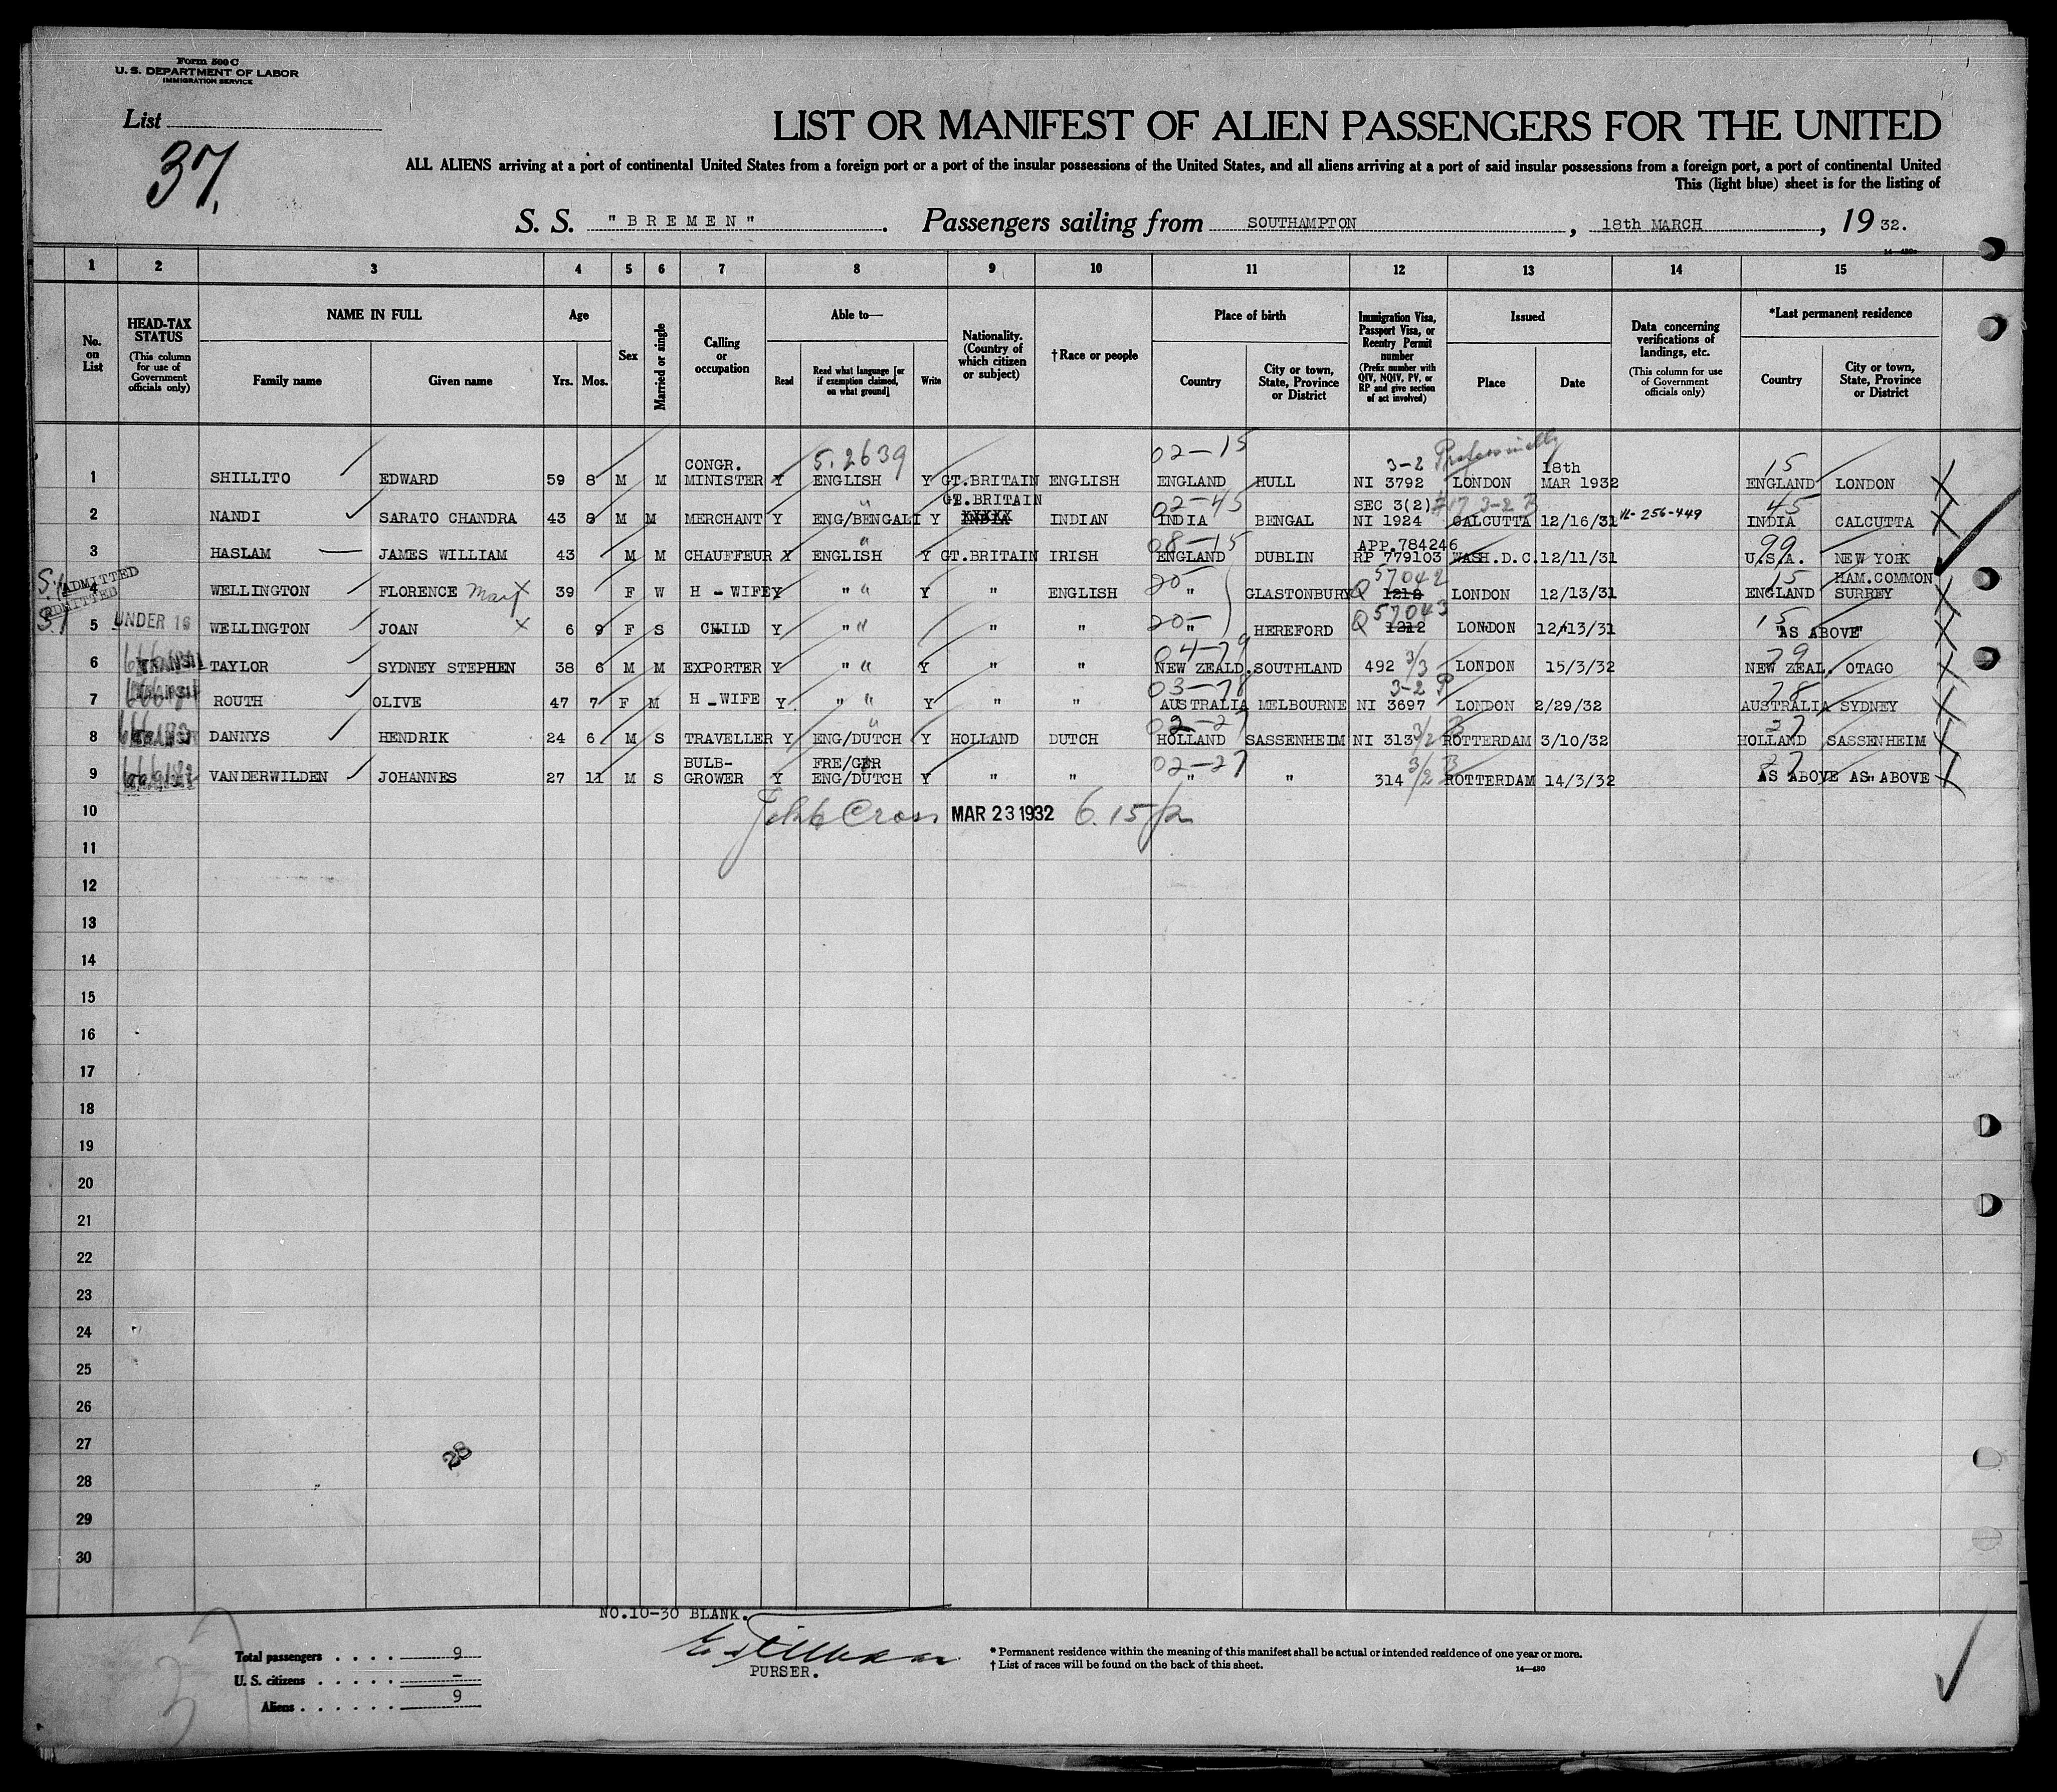 Form 500 C
U. S. DEPARTMENT OF LABOR
IMMIGRATION SERVICE
List
37.
LIST OR MANIFEST OF ALIEN PASSENGERS FOR THE UNITED
ALL ALIENS arriving at a port of continental United States from a foreign port or a port of the insular possessions of the United States, and all aliens arriving at a port of said insular possessions from a foreign port, a port of continental United
This (light blue) sheet is for the listing of
S. S. "BREMEN". Passengers sailing from SOUTHAMPTON, 18th MARCH, 19 32.
1 2 3 4 5 6 7 8 9 10 11 12 13 14 15
No. on List
HEAD-TAX STATUS (This column for use of Government officials only)
NAME IN FULL
Family name Given name
Age
Yrs. Mos.
Sex
Married or single
Calling or occupation
Able to—
Read Read what language [or if exemption claimed, on what ground] Write
Nationality. (Country of which citizen or subject)
†Race or people
Place of birth
Country City or town, State, Province or District
Immigration Visa, Passport Visa, or Reentry Permit number (Prefix number with QIV, NQIV, PV, or RP and give section of act involved)
Issued
Place Date
Data concerning verifications of landings, etc. (This column for use of Government officials only)
*Last permanent residence
Country City or town, State, Province or District
CONGR. 5.2639 02-15 3-2 Professionally 18th 15
1 SHILLITO EDWARD 59 8 M M MINISTER Y ENGLISH Y GT.BRITAIN ENGLISH ENGLAND HULL NI 3792 LONDON MAR 1932 ENGLAND LONDON
" GT.BRITAIN 02-45 SEC 3(2) 3-2 B 45
2 NANDI SARATO CHANDRA 43 8 M M MERCHANT Y ENG/BENGALI Y INDIA INDIAN INDIA BENGAL NI 1924 CALCUTTA 12/16/31 16-256-449 INDIA CALCUTTA
" 08-15 APP.784246 99
3 HASLAM JAMES WILLIAM 43 M M CHAUFFEUR Y ENGLISH Y GT.BRITAIN IRISH ENGLAND DUBLIN RP 779103 WASH.D.C. 12/11/31 U.S.A. NEW YORK
ADMITTED 20- 57042 15 HAM.COMMON
4 WELLINGTON FLORENCE Mary 39 F W H - WIFE Y " " Y " ENGLISH " GLASTONBURY Q 1212 LONDON 12/13/31 ENGLAND SURREY
ADMITTED 20- 57043 15
5 UNDER 16 WELLINGTON JOAN 6 9 F S CHILD Y " " " " " HEREFORD Q 1212 LONDON 12/13/31 "AS ABOVE"
04-79 3/3 79
6 TRANSIT TAYLOR SYDNEY STEPHEN 38 6 M M EXPORTER Y " " Y " " NEW ZEALD. SOUTHLAND 492 LONDON 15/3/32 NEW ZEAL. OTAGO
03-78 3-2 P 78
7 ROUTH OLIVE 47 7 F M H - WIFE Y " " Y " " AUSTRALIA MELBOURNE NI 3697 LONDON 2/29/32 AUSTRALIA SYDNEY
" 02-27 3/2 B 27
8 DANNYS HENDRIK 24 6 M S TRAVELLER Y ENG/DUTCH Y HOLLAND DUTCH HOLLAND SASSENHEIM NI 313 ROTTERDAM 3/10/32 HOLLAND SASSENHEIM
BULB- FRE/GER 02-27 3/2 B 27
9 VANDERWILDEN JOHANNES 27 11 M S GROWER Y ENG/DUTCH Y " " " " 314 ROTTERDAM 14/3/32 AS ABOVE AS ABOVE
10 Cross MAR 23 1932 6.15
11
12
13
14
15
16
17
18
19
20
21
22
23
24
25
26
27
28
28
29
30
NO.10-30 BLANK.
Total passengers . . . . 9
U. S. citizens . . . . . –
Aliens . . . . . . 9
PURSER.
* Permanent residence within the meaning of this manifest shall be actual or intended residence of one year or more.
† List of races will be found on the back of this sheet.
14—430
37